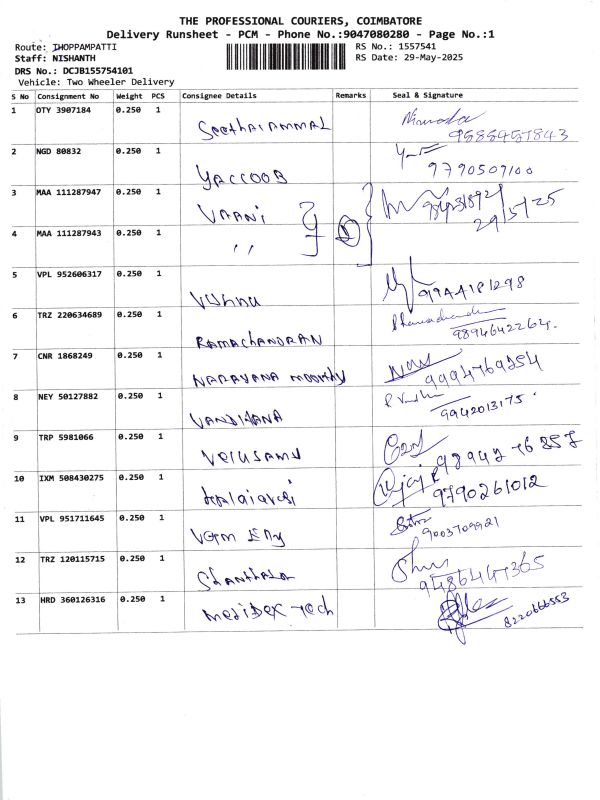 THE PROFESSIONAL COURIERS, COIMBATORE
Delivery Runsheet - PCM - Phone No.:9047080280 - Page No.:1
Route: THOPPAMPATTI
RS No.: 1557541
Staff: NISHANTH
RS Date: 29-May-2025
DRS No.: DCJB155754101
Vehicle: Two Wheeler Delivery
S No Consignment No Weight PCS Consignee Details Remarks Seal & Signature
1 OTY 3907184 0.250 1 Seethaiammal
2 NGD 80832 0.250 1 YACCOOB 9790509100
3 MAA 111287947 0.250 1 VAANI 29/5/25
4 MAA 111287943 0.250 1 ,,
5 VPL 952606317 0.250 1 Vishnu 9944181298
6 TRZ 220634689 0.250 1 RAMACHANDRAN 9894642264.
7 CNR 1868249 0.250 1 NARAYANA MOORTHY 9994769254
8 NEY 50127882 0.250 1 VANDHANA 9942013175.
9 TRP 5981066 0.250 1 Velusamy 98942 76857
10 IXM 508430275 0.250 1 Kalaiarasi 9790261012
11 VPL 951711645 0.250 1 9003709921
12 TRZ 120115715 0.250 1 Shanthala 9486447365
13 HRD 360126316 0.250 1 Medidex Tech 8220666553